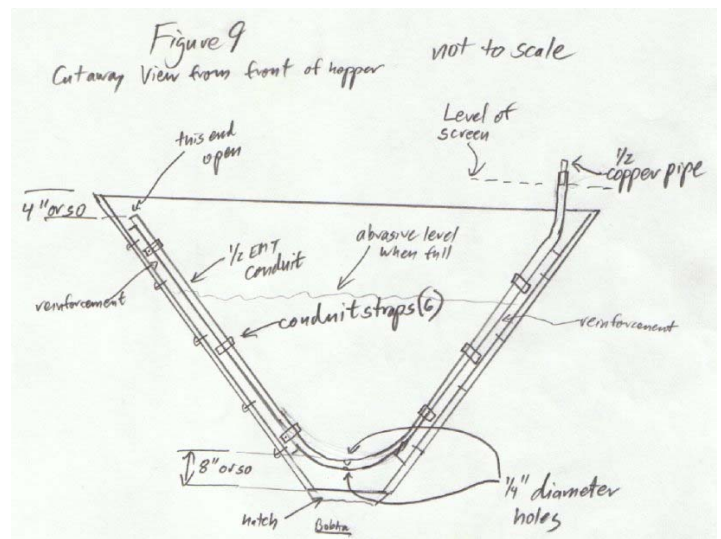 Figure 9
not to scale
Cutaway View from front of hopper
Level of
screen
1/2
copper pipe
this end
open
4" or so
1/2 EMT
conduit
abrasive level
when full
reinforcement
conduit straps (6)
reinforcement
8" or so
1/4" diameter
holes
hatch